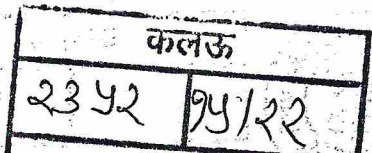 कलऊ
२३५२ १५/२२